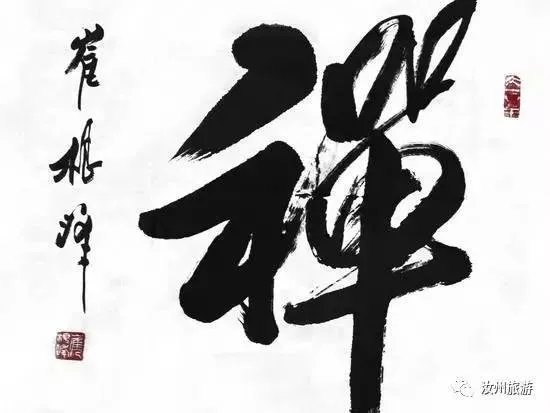 禪
崔根峰
汝州旅游